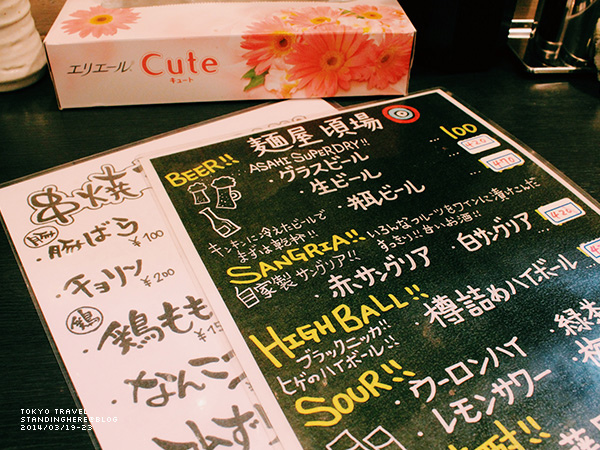 エリエール Cute
キュート
麺屋 頃場
BEER!!
ASAHI SUPER DRY!!
・グラスビール … 100
・生ビール … 420
・瓶ビール … 470
キンキンに冷えたビールで
まずは乾杯!!
SANGRIA!! いろんなフルーツをワインに漬けこんだ
自家製サングリア!! すっきり!!甘いお酒!!
・赤サングリア 白サングリア 420
HIGH BALL!! ・樽詰めハイボール
ブラックニッカ!!
ヒゲのハイボール!!
SOUR!! ・ウーロンハイ 緑
・レモンサワー
串焼
豚
・豚ばら ¥100
・チョリソ ¥200
鶏
・鶏もも ¥15
・なんこつ
TOKYO TRAVEL
STANDINGHERE@BLOG
2014/03/19-23